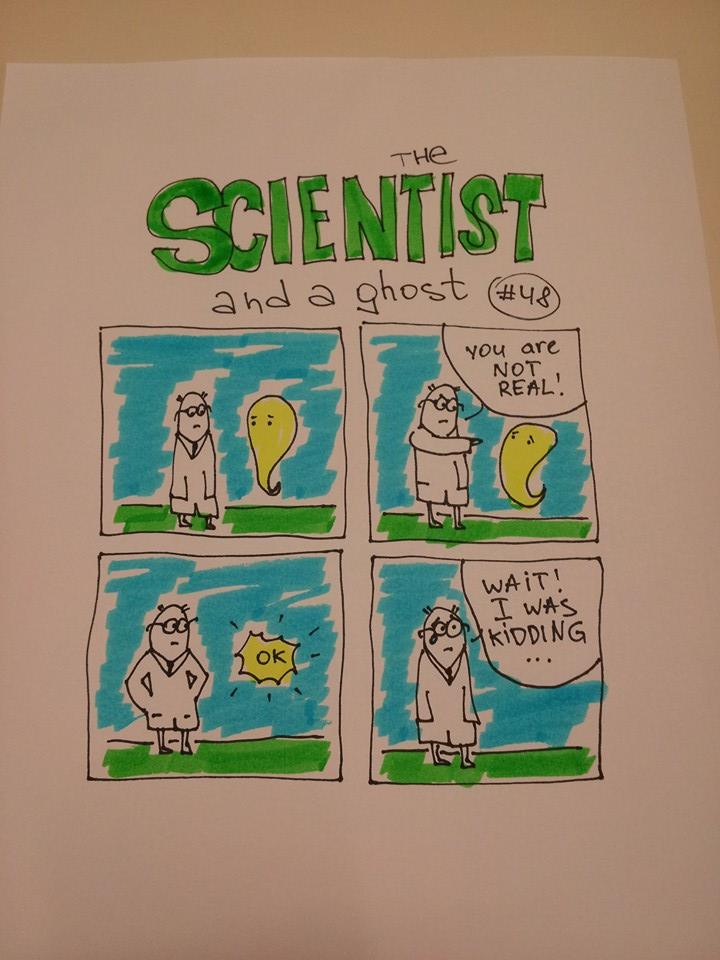 THE
SCIENTIST
and a ghost #48
you are
NOT
REAL!
OK
WAiT!
I WAS
KiDDING
...